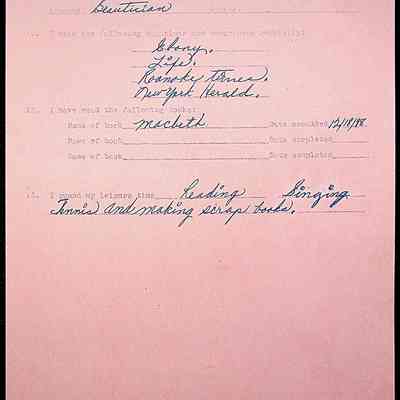 Beautician
following magazines and newspapers regularly:
Ebony.
Life.
Roanoke Times.
New York Herald.
I have read the following books:
Name of book Macbeth Date completed 12/18/48
Name of book Date completed
Name of book Date completed
I spend my leisure time Reading Singing
Tennis and making scrap books.